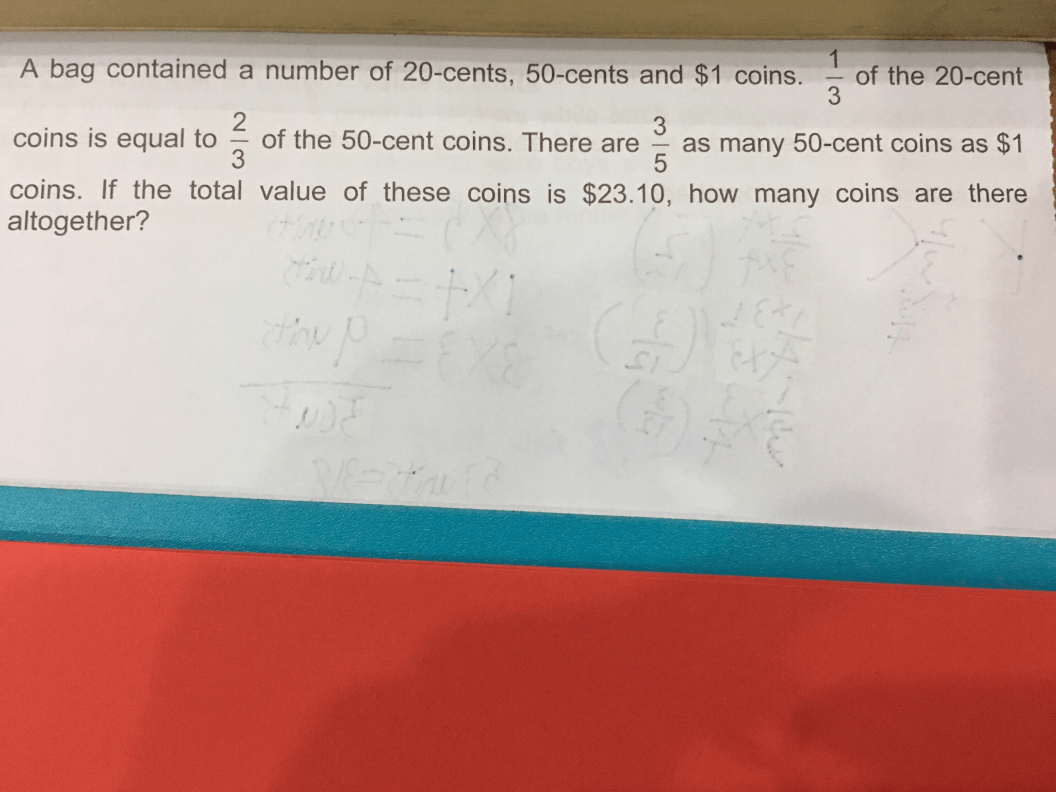 A bag contained a number of 20-cents, 50-cents and $1 coins. 1/3 of the 20-cent
coins is equal to 2/3 of the 50-cent coins. There are 3/5 as many 50-cent coins as $1
coins. If the total value of these coins is $23.10, how many coins are there
altogether?